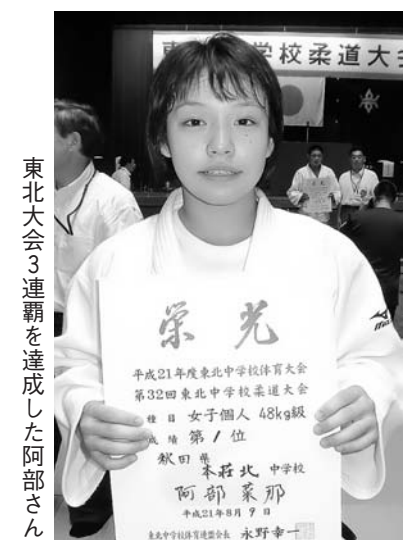 東北大会3連覇を達成した阿部さん
学校柔道大会
栄光
平成21年度東北中学校体育大会
第32回東北中学校柔道大会
種目 女子個人 48kg級
成績 第1位
秋田県
本荘北 中学校
阿部菜那
平成21年8月9日
東北中学校体育連盟会長 永野幸一